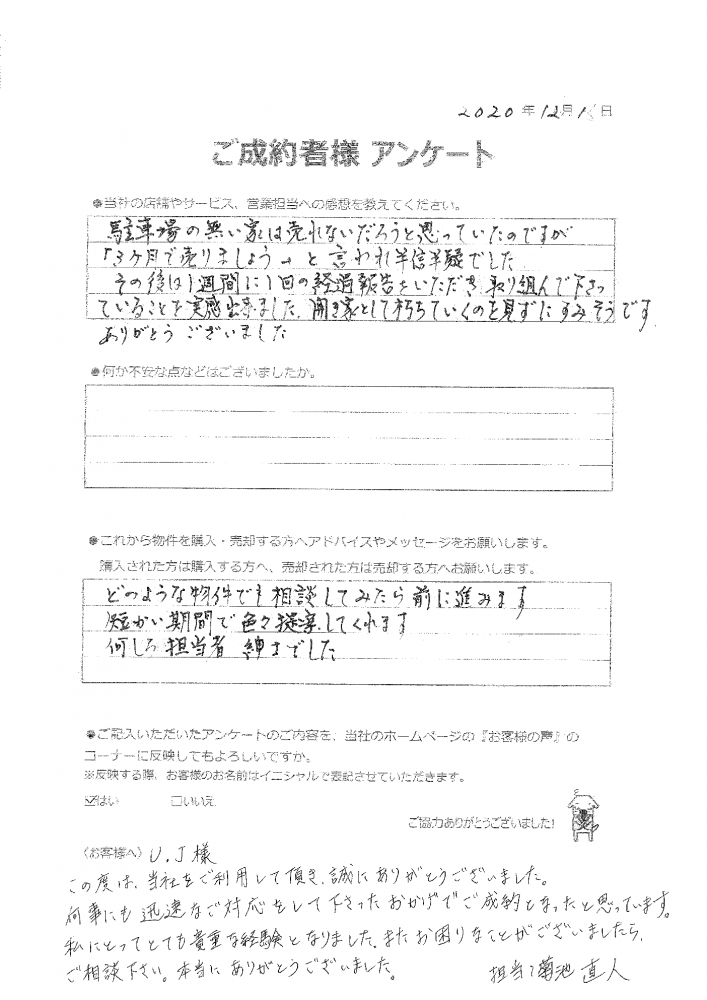 2020年12月1日
ご成約者様 アンケート
●当社の店舗やサービス、営業担当への感想を教えてください。
駐車場の無い家は売れないだろうと思っていたのですが
「3ヶ月で売りましょう」と言われ半信半疑でした
その後は1週間に1回の経過報告をいただき取り組んで下さっ
ていることを実感出来ました。開き家として朽ちていくのを見ずにすみそうです
ありがとうございました
●何か不安な点などはございましたか。
●これから物件を購入・売却する方へアドバイスやメッセージをお願いします。
購入された方は購入する方へ、売却された方は売却する方へお願いします。
どのような物件でも相談してみたら前に進みます
短かい期間で色々提案してくれます
何しろ担当者 紳士でした
●ご記入いただいたアンケートのご内容を、当社のホームページの『お客様の声』の
コーナーに反映してもよろしいですか。
※反映する際、お客様のお名前はイニシャルで表記させていただきます。
☑はい □いいえ
ご協力ありがとうございました!
(お客様へ) U.J様
この度は、当社をご利用して頂き、誠にありがとうございました。
何事にも迅速なご対応をして下さったおかげでご成約となったと思っています。
私にとってとても貴重な経験となりました。またお困りなことがございましたら、
ご相談下さい。本当にありがとうございました。 担当:菊池 直人